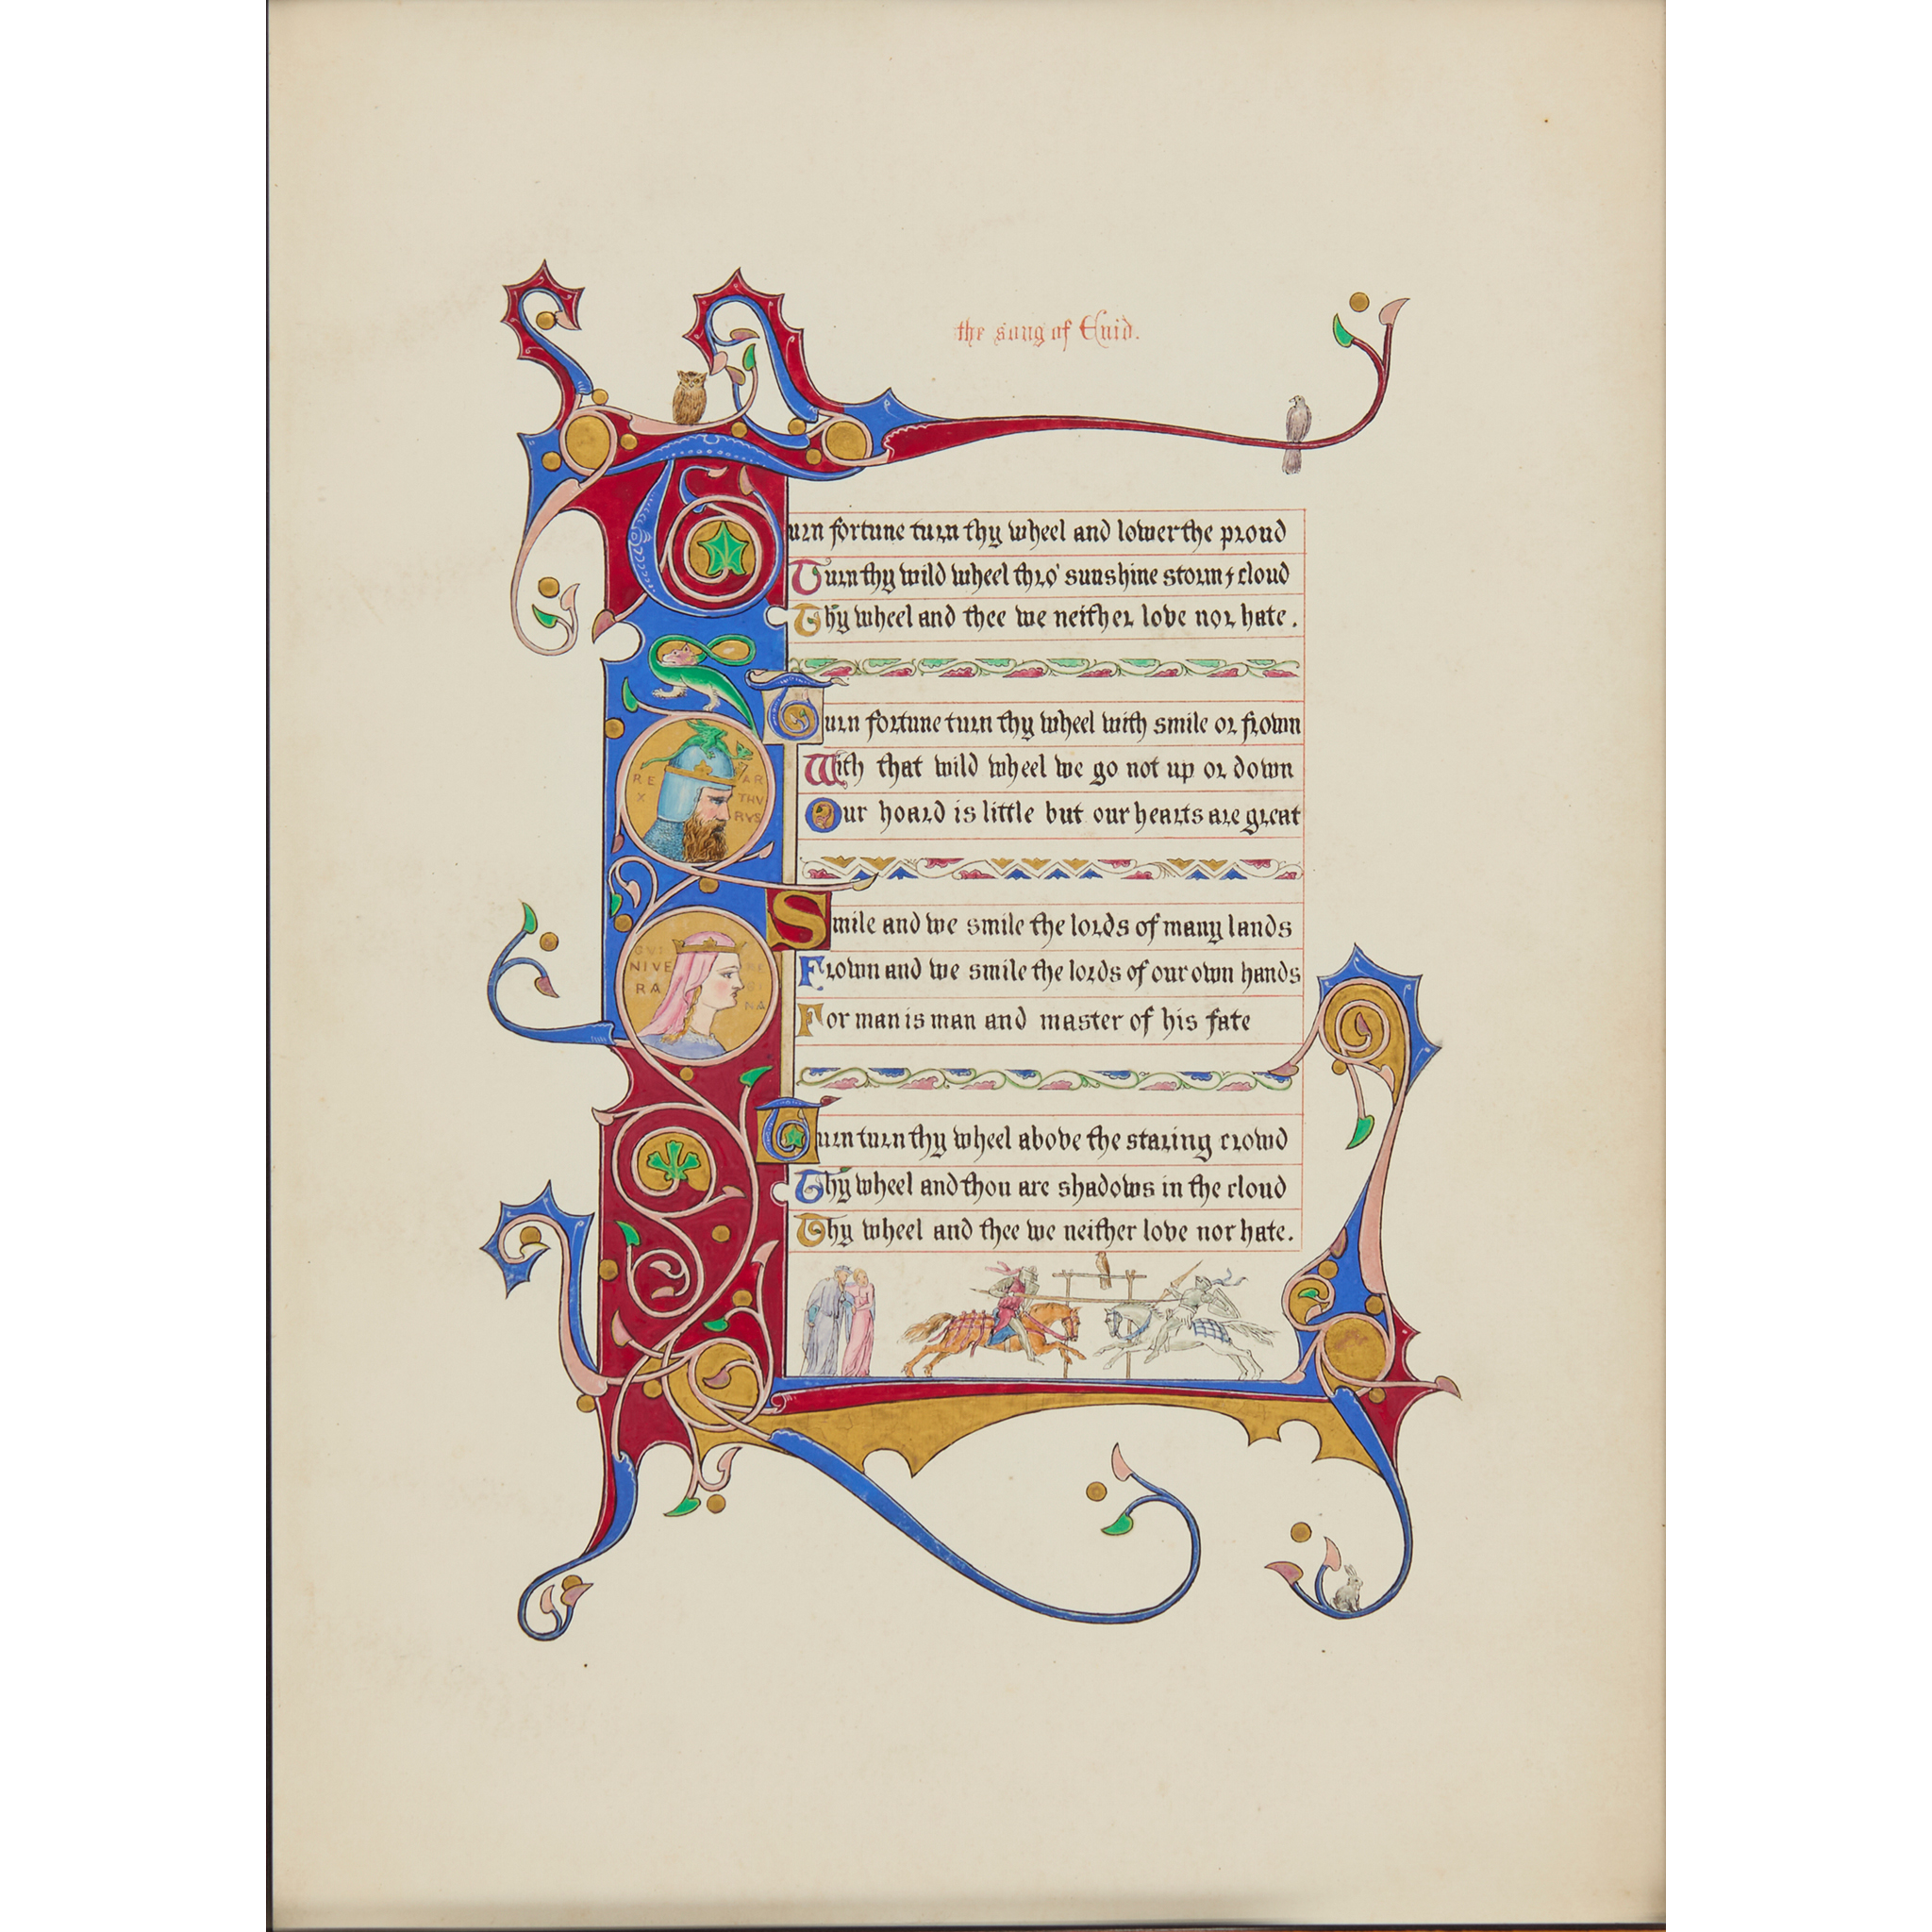 the song of Enid.
Turn fortune turn thy wheel and lower the proud
Turn thy wild wheel thro' sunshine storm & cloud
Thy wheel and thee we neither love nor hate.
Turn fortune turn thy wheel with smile or frown
With that wild wheel we go not up or down
Our hoard is little but our hearts are great
Smile and we smile the lords of many lands
Frown and we smile the lords of our own hands
For man is man and master of his fate
Turn turn thy wheel above the staring crowd
Thy wheel and thou are shadows in the cloud
Thy wheel and thee we neither love nor hate.
RE
X
AR
THV
RVS
GVI
NIVE
RA
RE
GI
NA